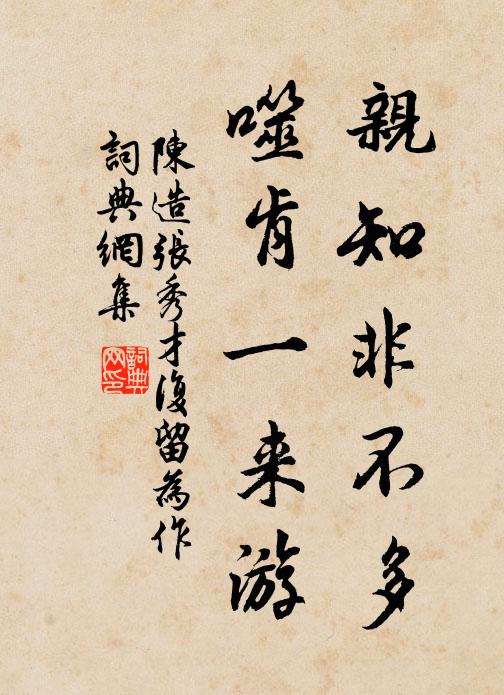 親知非不多
噬肯一来游
陳造張秀才復留為作
詞典網集
詞典網印